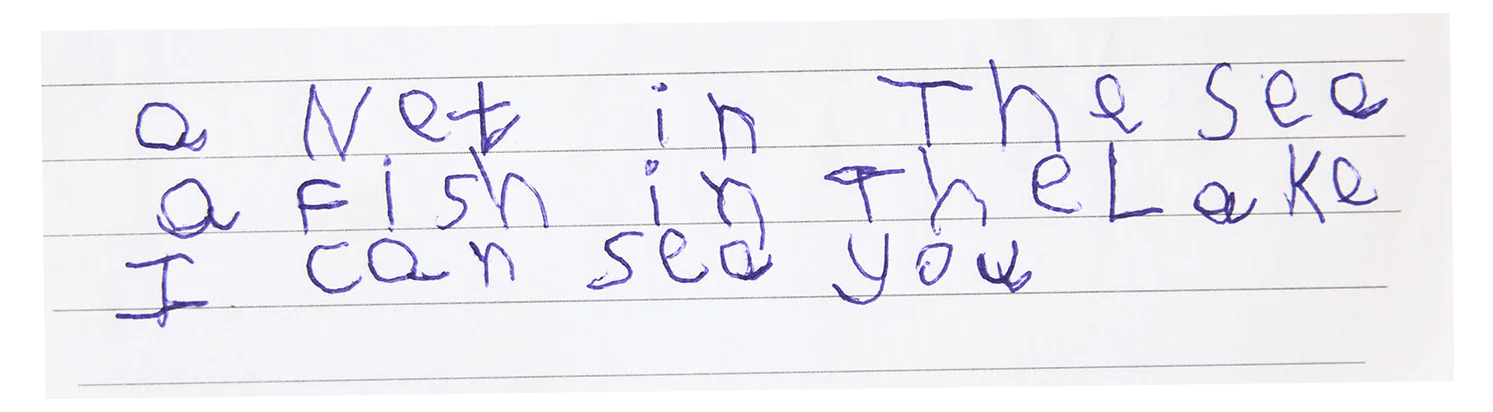 a Net in The sea
a Fish in The Lake
I can sea you